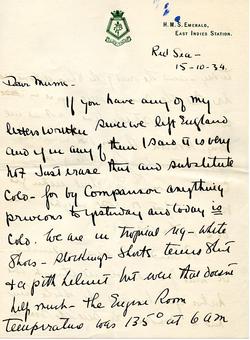 H.M.S. EMERALD,
EAST INDIES STATION.
Red Sea -
15-10-34.
Dear Mummie -
If you have any of my
letters written since we left England
and if in any of them I said it is very
hot just erase that and substitute
cold - for by comparison anything
previous to yesterday and today is
cold. We are in tropical rig - white
shoes - stockings - shorts, tennis shirt
& a pith helmet but even that doesn't
help much - the Engine Room
temperature was 135° at 6 am